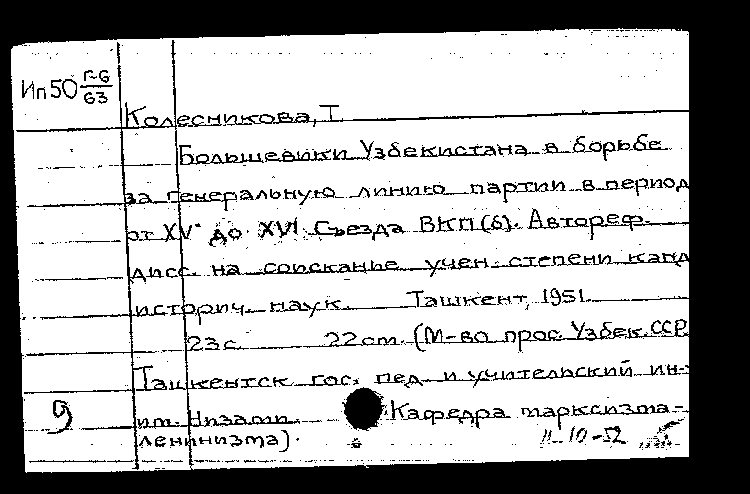 Ип50 Г-6
63
Колесникова, Т.
Большевики Узбекистана в борьбе
за генеральную линию партии в период
от XV до XVI Съезда ВКП(б). Автореф.
дисс. на соисканье учен. степени канд
историч. наук. Ташкент, 1951.
23с. 22cm. (М-во прос. Узбек. ССР.
Ташкентск гос. пед. и учительский ин-
им. Низами. Кафедра марксизма-
ленинизма).
9
11-10-52